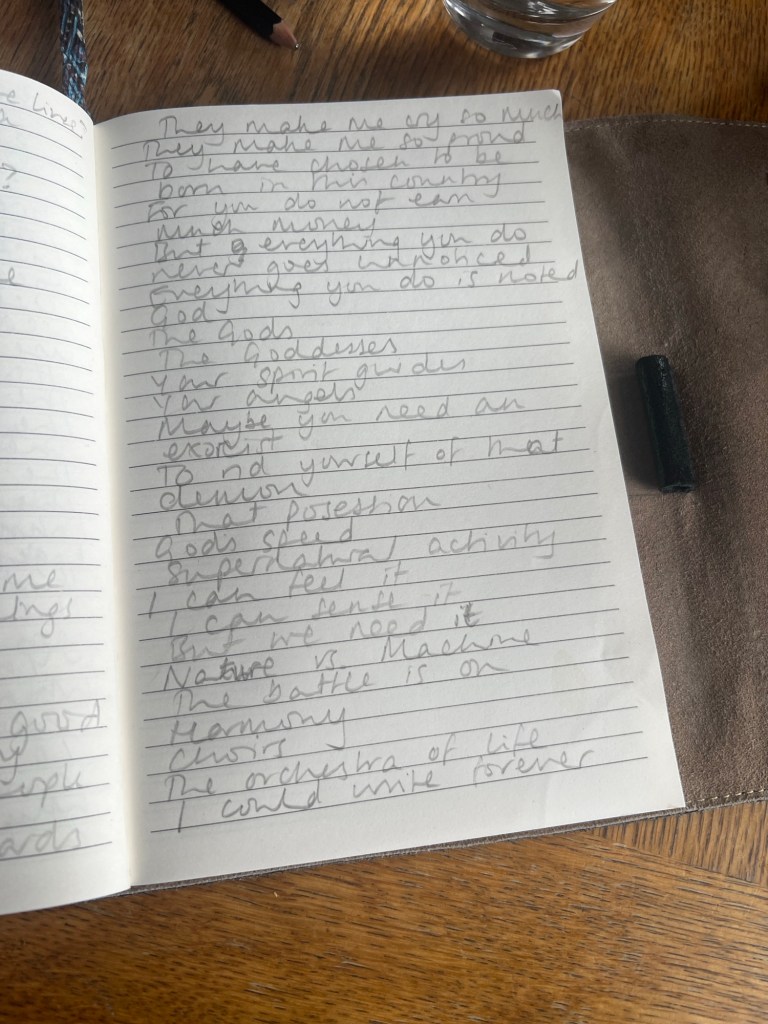 e lines?
?
e
me
ings
good
y
eople
ards
They make me cry so much
They make me so proud
To have chosen to be
born in this country
For you do not earn
much money
But everything you do
never goes unnoticed
Everything you do is noted
God
The Gods
The Goddesses
Your spirit guides
Your angels
Maybe you need an
exorcist
To rid yourself of that
demon
That posession
Gods speed
Supernatural activity
I can feel it
I can sense it
But we need it
Nature vs. Machine
The battle is on
Harmony
Choirs
The orchestra of life
I could write forever